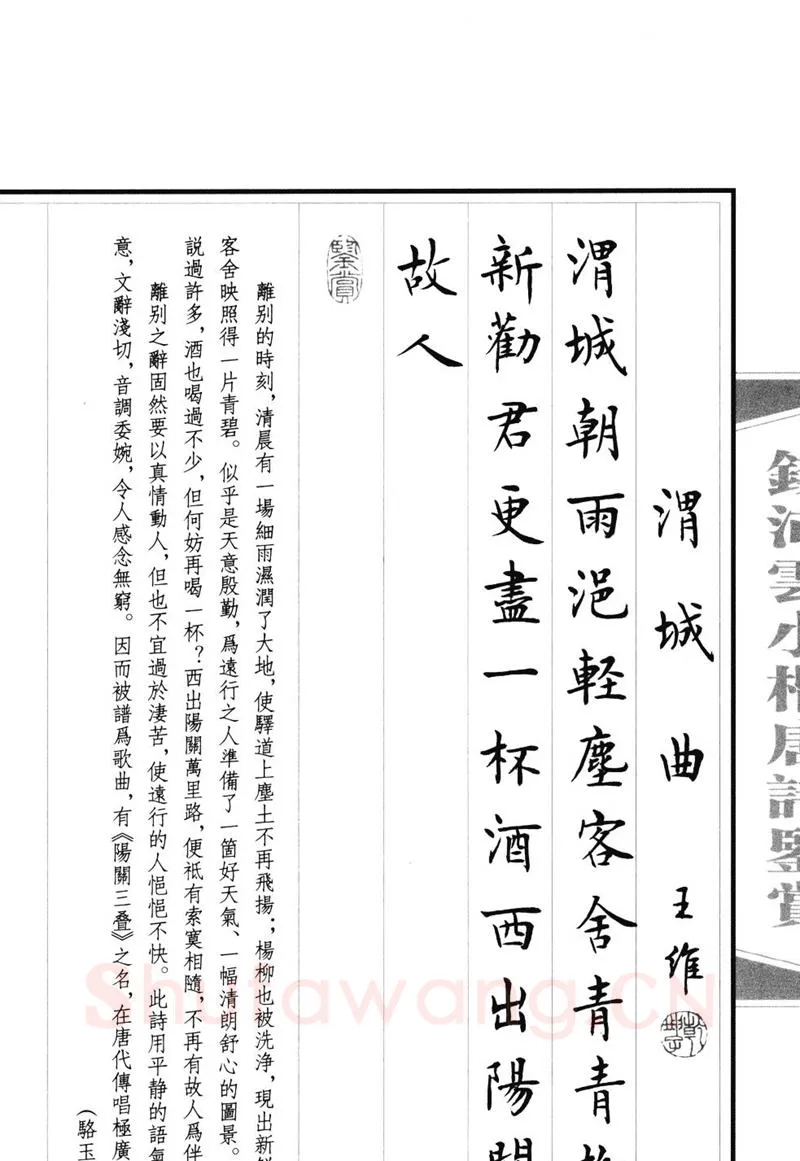 渭城曲
王維
渭城朝雨浥輕塵客舍青青
新勸君更盡一杯酒西出陽
故人
鑒賞
離别的時刻，清晨有一場細雨濕潤了大地，使驛道上塵土不再飛揚；楊柳也被洗浄，現出新
客舍映照得一片青碧。似乎是天意殷勤，爲遠行之人準備了一箇好天氣、一幅清朗舒心的圖景。
説過許多，酒也喝過不少，但何妨再喝一杯？西出陽關萬里路，便祇有索寞相隨，不再有故人爲伴
離别之辭固然要以真情動人，但也不宜過於淒苦，使遠行的人悒悒不快。此詩用平静的語氣
意，文辭淺切，音調委婉，令人感念無窮。因而被譜爲歌曲，有《陽關三叠》之名，在唐代傳唱極廣
（駱玉
雲小楷唐詩鑒賞
Shufawang.CN